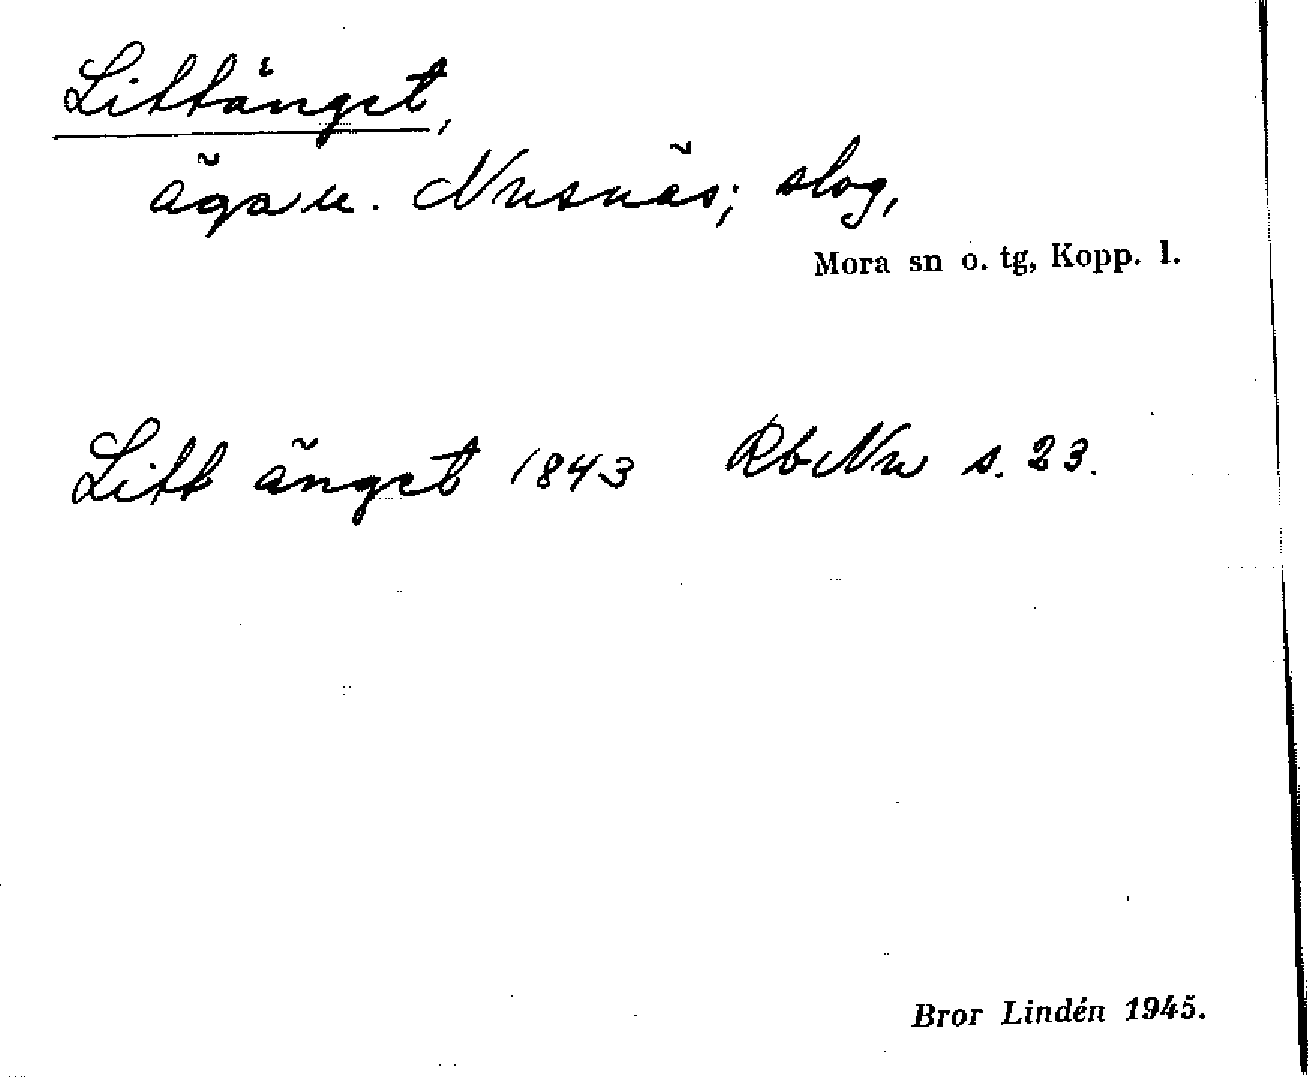 Littänget,
äga u. Nusnäs; slog,
Mora sn o. tg, Kopp. l.
Litt änget 1843 RbNu s. 23.
Bror Lindén 1945.